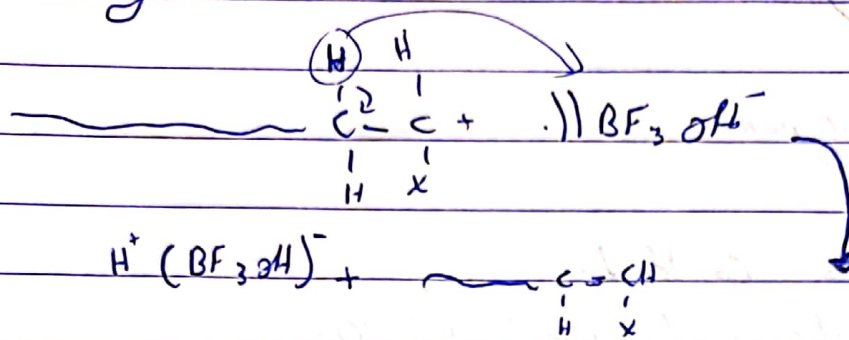 H H
C - C + .)) BF3 OH-
H X
H+ (BF3OH)- + C = CH
H X